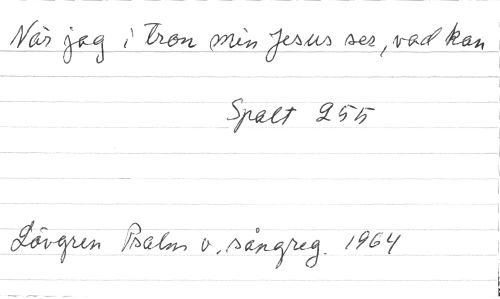 När jag i tron min Jesus ser, vad kan
Spalt 255
Lövgren Psalm o. sångreg. 1964